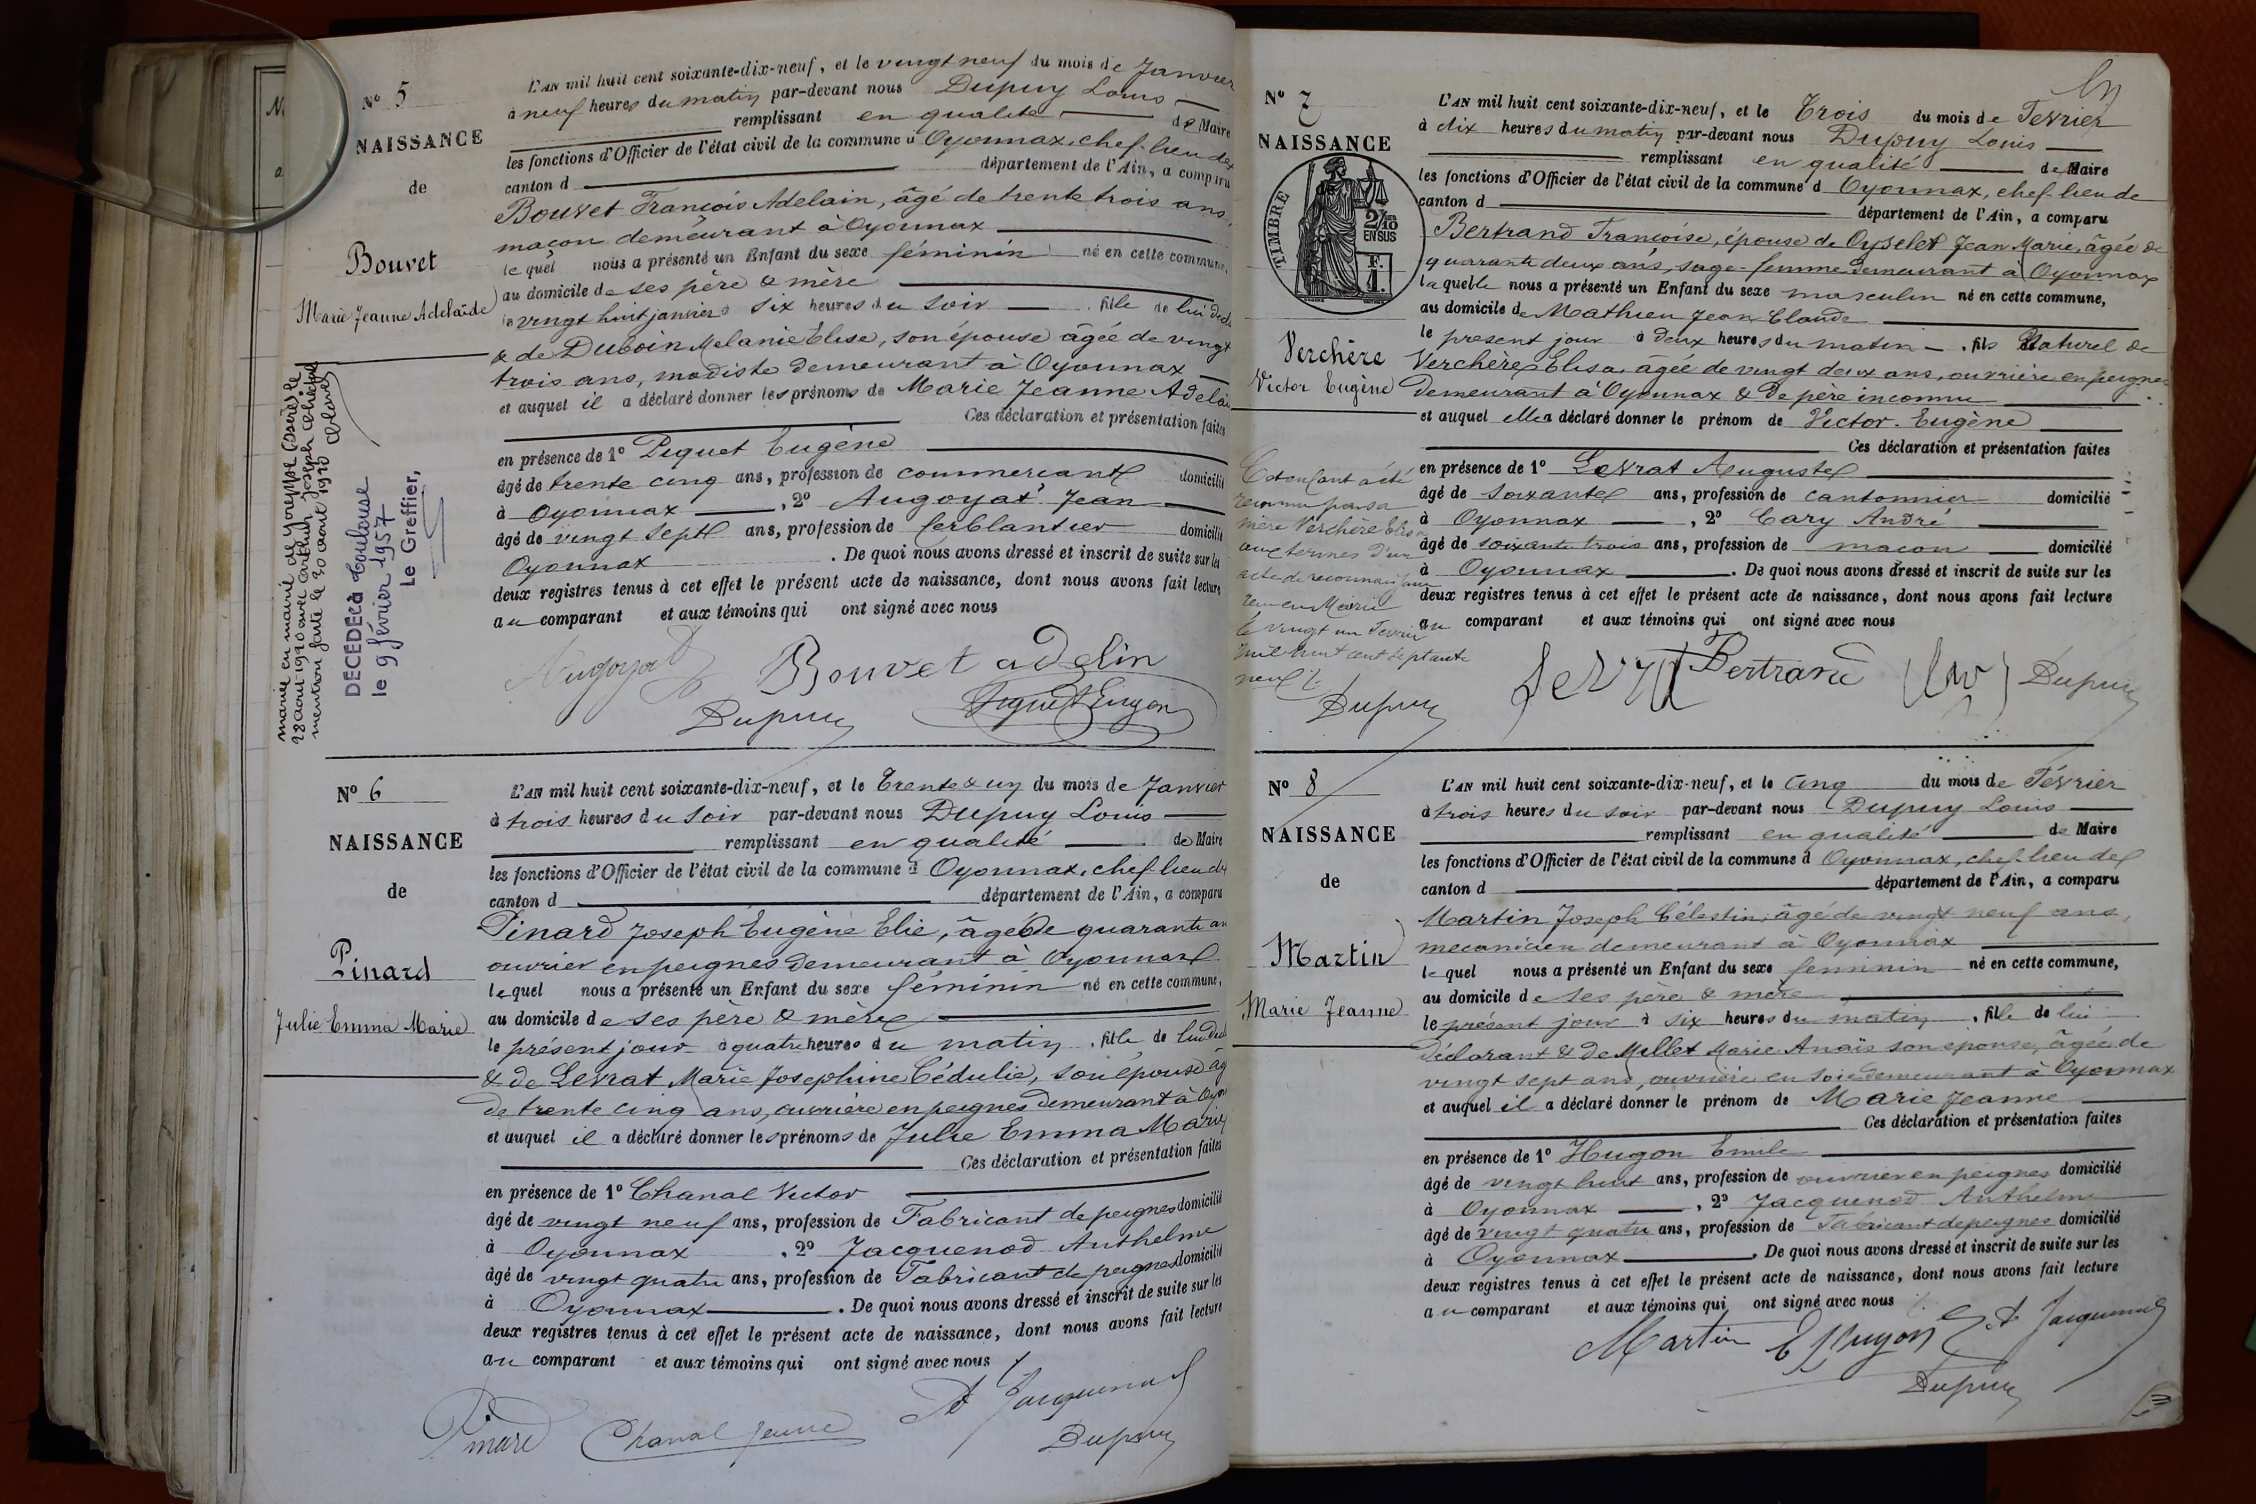 N° 5
NAISSANCE
de
Bouvet
Marie Jeanne Adelaïde
mariée en mairie de
28 août 1920 avec Arthur Joseph
mention faite le 30 août 1920
DÉCÉDÉE à Toulouse
le 9 février 1957
Le Greffier,
L'AN mil huit cent soixante-dix-neuf, et le vingt neuf du mois de Janvier
à neuf heures du matin par-devant nous Dupuy Louis
remplissant en qualité de Maire
les fonctions d'Officier de l'état civil de la commune d Oyonnax, chef-lieu de
canton d département de l'Ain, a comparu
Bouvet François Adelain, âgé de trente trois ans,
maçon demeurant à Oyonnax
le quel nous a présenté un Enfant du sexe féminin né en cette commune,
au domicile de ses père & mère
le vingt huit janvier à six heures du soir fille de lui
& de Duboin Melanie Elise, son épouse âgée de vingt
trois ans, modiste demeurant à Oyonnax
et auquel il a déclaré donner les prénoms de Marie Jeanne
Ces déclaration et présentation faites
en présence de 1° Piquet Eugène
âgé de trente cinq ans, profession de commerçant domicilié
à Oyonnax , 2° Augoyat Jean
âgé de vingt sept ans, profession de ferblantier domicilié
Oyonnax . De quoi nous avons dressé et inscrit de suite sur les
deux registres tenus à cet effet le présent acte de naissance, dont nous avons fait lecture
au comparant et aux témoins qui ont signé avec nous
Augoyat Bouvet adelin
Dupuy
N° 6
NAISSANCE
de
Pinard
Julie Emma Marie
L'AN mil huit cent soixante-dix-neuf, et le trente & un du mois de Janvier
à trois heures du soir par-devant nous Dupuy Louis
remplissant en qualité de Maire
les fonctions d'Officier de l'état civil de la commune d Oyonnax, chef-lieu de
canton d département de l'Ain, a comparu
Pinard Joseph Eugène Elie, âgé de quarante an
ouvrier en peignes demeurant à Oyonnax
lequel nous a présenté un Enfant du sexe féminin né en cette commune,
au domicile de ses père & mère
le présent jour à quatre heures du matin , fille de lui
& de Levrat Marie Josephine Cédulie, son épouse âg
de trente cinq ans, ouvrière en peignes demeurant à Oyon
et auquel il a déclaré donner les prénoms de Julie Emma Marie
Ces déclaration et présentation faites
en présence de 1° Chanal Victor
âgé de vingt neuf ans, profession de Fabricant de peignes domicilié
à Oyonnax , 2° Jacquenod Anthelme
âgé de vingt quatre ans, profession de Fabricant de peignes domicilié
à Oyonnax . De quoi nous avons dressé et inscrit de suite sur les
deux registres tenus à cet effet le présent acte de naissance, dont nous avons fait lecture
au comparant et aux témoins qui ont signé avec nous
Pinard Chanal jeune A Jacquenod
Dupuy
N° 7
NAISSANCE
TIMBRE
2/10
EN SUS
F.
1.
Verchère
Victor Eugène
Cet enfant a été
reconnu par sa
mère Verchère Elisa
aux termes d'un
acte de reconnaissance
reçu en Mairie
le vingt un Fevrier
mil huit cent septante
neuf
Dupuy
L'AN mil huit cent soixante-dix-neuf, et le Trois du mois de Fevrier
à dix heures du matin par-devant nous Dupuy Louis
remplissant en qualité de Maire
les fonctions d'Officier de l'état civil de la commune d Oyonnax, chef-lieu de
canton d département de l'Ain, a comparu
Bertrand Françoise, épouse de Oyselet Jean Marie, âgée de
quarante deux ans, sage-femme demeurant à Oyonnax
laquelle nous a présenté un Enfant du sexe masculin né en cette commune,
au domicile de Mathieu Jean Claude
le present jour à deux heures du matin , fils Naturel de
Verchère Elisa, âgée de vingt deux ans, ouvrière en peignes
demeurant à Oyonnax & de père inconnu
et auquel elle a déclaré donner le prénom de Victor Eugène
Ces déclaration et présentation faites
en présence de 1° Levrat Auguste
âgé de soixante ans, profession de cantonnier domicilié
à Oyonnax , 2° Cary André
âgé de soixante trois ans, profession de maçon domicilié
à Oyonnax . De quoi nous avons dressé et inscrit de suite sur les
deux registres tenus à cet effet le présent acte de naissance, dont nous avons fait lecture
au comparant et aux témoins qui ont signé avec nous
Bertrand Dupuy
N° 8
NAISSANCE
de
Martin
Marie Jeanne
L'AN mil huit cent soixante-dix-neuf, et le cinq du mois de Février
à trois heures du soir par-devant nous Dupuy Louis
remplissant en qualité de Maire
les fonctions d'Officier de l'état civil de la commune d Oyonnax, chef-lieu de
canton d département de l'Ain, a comparu
Martin Joseph Célestin, âgé de vingt neuf ans,
mecanicien demeurant à Oyonnax
le quel nous a présenté un Enfant du sexe feminin né en cette commune,
au domicile de ses père & mère
le présent jour à six heures du matin , fille de lui
déclarant & de Millet Marie Anaïs son épouse, âgée de
vingt sept ans, ouvrière en soie demeurant à Oyonnax
et auquel il a déclaré donner le prénom de Marie Jeanne
Ces déclaration et présentation faites
en présence de 1° Hugon Emile
âgé de vingt huit ans, profession de ouvrier en peignes domicilié
à Oyonnax , 2° Jacquenod Anthelme
âgé de vingt quatre ans, profession de Fabricant de peignes domicilié
à Oyonnax . De quoi nous avons dressé et inscrit de suite sur les
deux registres tenus à cet effet le présent acte de naissance, dont nous avons fait lecture
au comparant et aux témoins qui ont signé avec nous
Martin E Hugon A Jacquenod
Dupuy